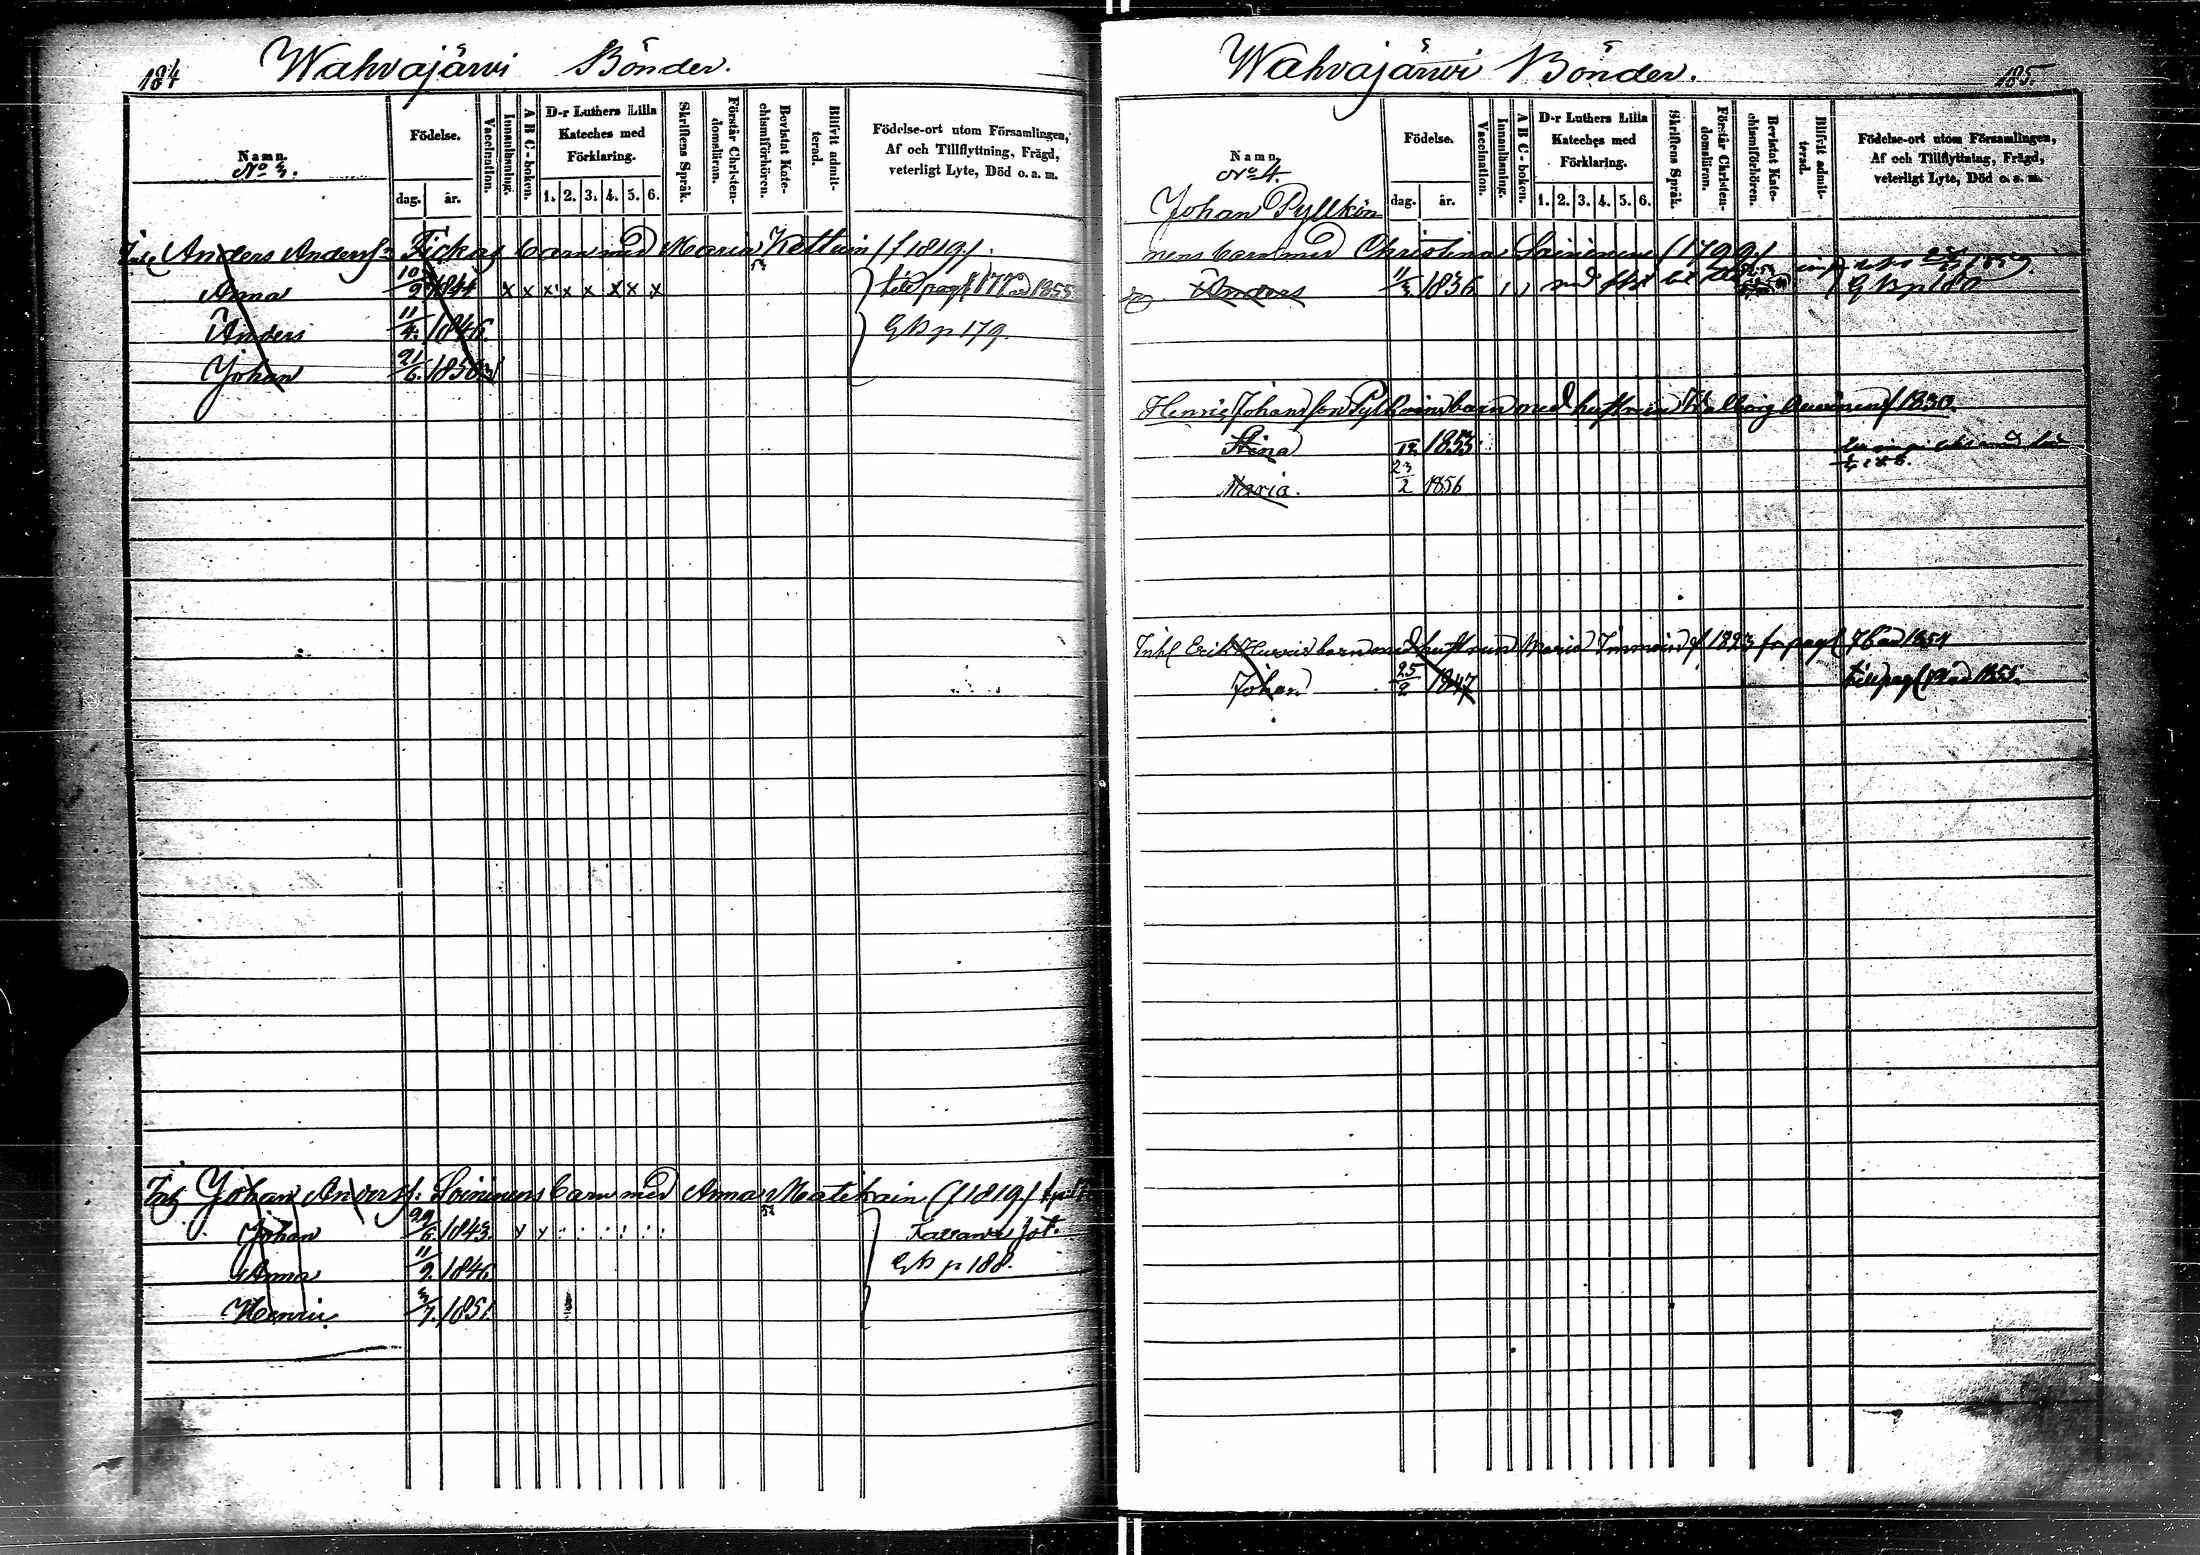 184
Wahvajärvi Bönder.
Namn.
No 3.
Födelse.
dag. år.
Vaccination.
Innanläsning.
A B C-boken.
D-r Luthers Lilla
Kateches med
Förklaring.
1. 2. 3. 4. 5. 6.
Skriftens Språk.
Förstår Christen-
domsläran.
Bevistat Kate-
chismiförhören.
Blifvit admit-
terad.
Födelse-ort utom Församlingen,
Af och Tillflyttning, Frägd,
veterligt Lyte, Död o. a. m.
Anders Anderss: Fickas barn med Maria (f 1819).
Anna 10/2 1844 x x x x x x x x till pag 177 ad 1855
Anders 11/4. 1846. Kb p 179
Johan 21/6. 1850
Inh Johan Anderss: Loininens barn med Anna Matikain (f 1819)
Johan 29/6. 1843.
Anna 11/9. 1846 Kb p 188.
Henric 3/7. 1851.
Wahvajärvi Bönder.
185.
Namn.
No 4.
Johan Pyllkön
Födelse.
dag. år.
Vaccination.
Innanläsning.
A B C-boken.
D-r Luthers Lilla
Kateches med
Förklaring.
1. 2. 3. 4. 5. 6.
Skriftens Språk.
Förstår Christen-
domsläran.
Bevistat Kate-
chismiförhören.
Blifvit admit-
terad.
Födelse-ort utom Församlingen,
Af och Tillflyttning, Frägd,
veterligt Lyte, Död o. a. m.
nens barn med Christina Loininen (1799)
Anders 11/3. 1836 Kb p 180
Henric Johansson Pylköins barn med hustrun f 1830.
Stina 1853
Maria. 23/2 1856
Inh Erik barn med hustrun Maria Immoin f 1823 fr pag 76 ad 1854
Johan 25/2 1847 till pag ad 1855.